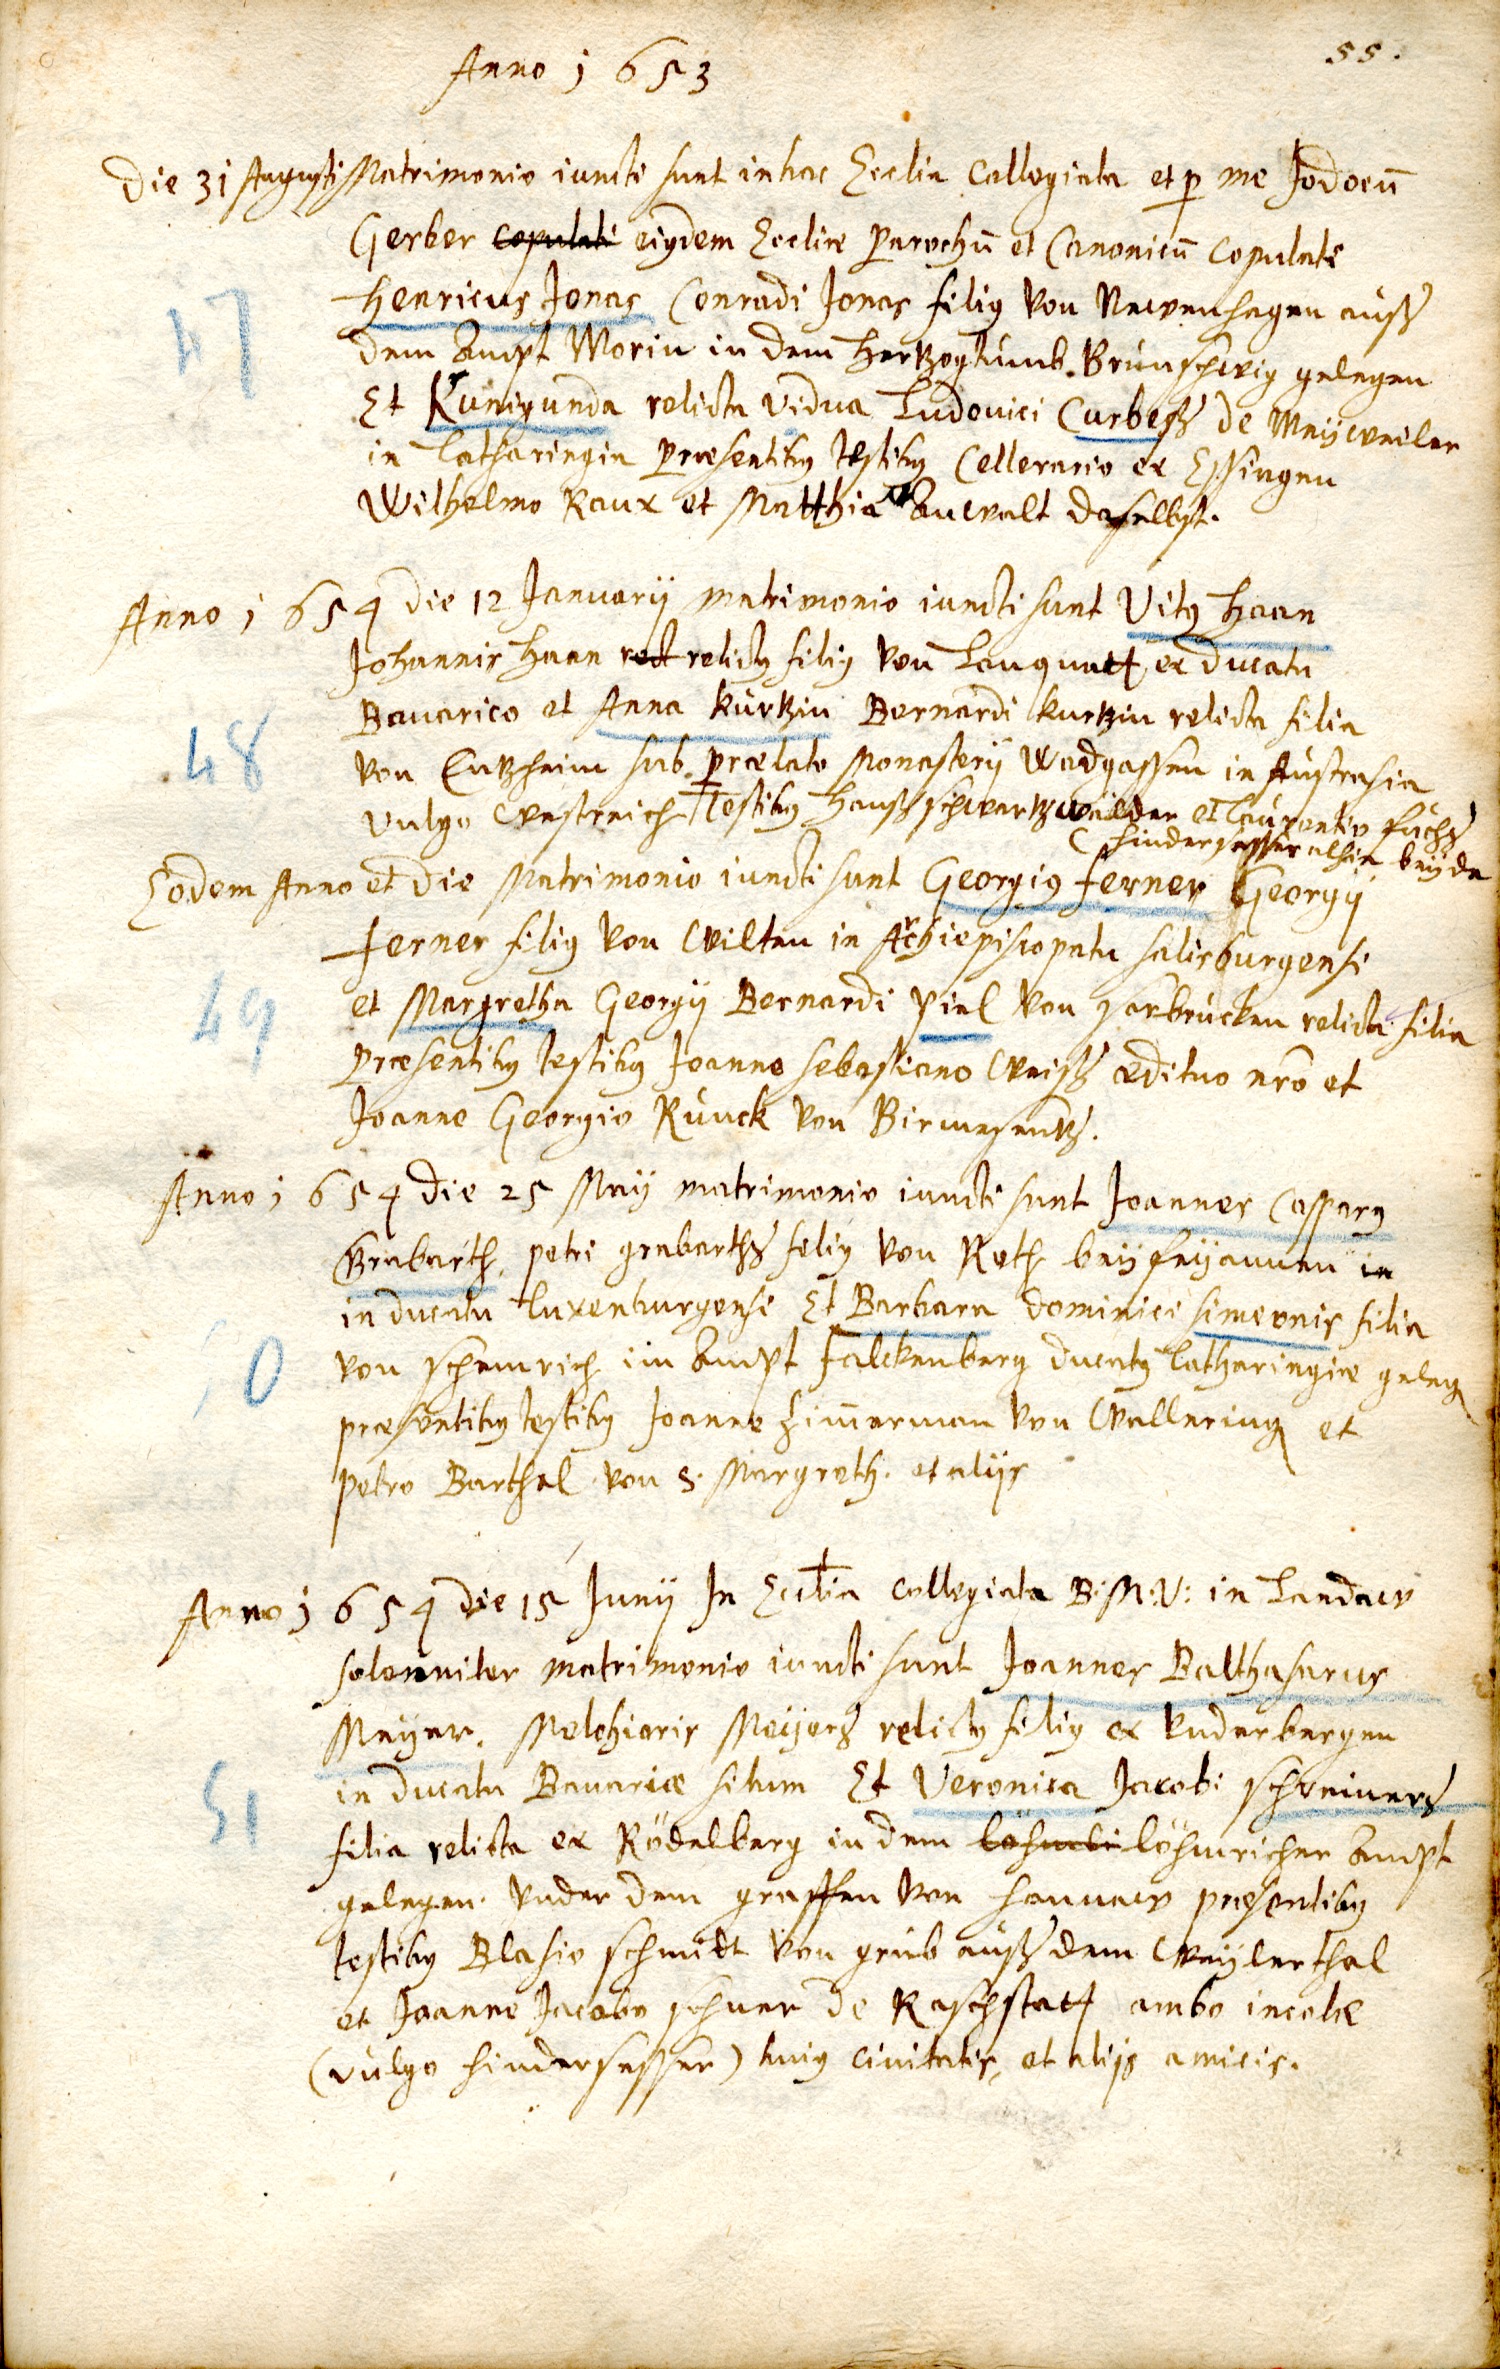 55.
Anno 1653
Die 31 Augusti Matrimonio iuncti sunt in hac Ecclia Collegiata et p me Jodocū
Gerber copulati eiusdem Ecclie Parochū et Canonicū Copulati
47
Henricus Jonas Conradi Jonas filius von Newenhagen auß
dem Ampt Morin in dem Hertzogtumb Brunschwig gelegen
Et Kunigunda relicta vidua Ludovici Curbeß de Meÿweiler
in Latharingia præsentibus testibus Cellerario ex Essingen
Wilhelmo Raux et Matthia Anwalt daselbst.
Anno 1654 die 12 Januarÿ matrimonio iuncti sunt Vitus Haan
Johannis Haan rect relictus filius von Langquatt ex ducatu
48
Bavarico et Anna Kurtzin Bernardi Kurtzin relicta filia
von Entzheim sub prælato Monasterÿ Wadgassen in Austrasia
vulgo Westreich Testibus Hanß schwartzwälder et Laurentio fuchß
hindersasser alhie beÿde
Eodem Anno et die Matrimonio iuncti sunt Georgius ferner Georgÿ
ferner filius von Wilten in Archiepiscopatu salisburgensi
49
et Margretha Georgÿ Bernardi Piel von Zarbrucken relicta filia
Præsentibus testibus Joanne Sebastiano Weiß ædituo nrō et
Joanne Georgio Runck von Birmesentz.
Anno 1654 die 25 Maÿ matrimonio iuncti sunt Joannes Casparus
Grabarth, petri grabarthß filius von Roth beÿ in
in ducatu Luxenburgensi Et Barbara dominici simeonis filia
50
von schemrich im Ampt Falckenberg ducatus Latharingiæ geleg
præsentibus testibus Joanne Zim̄erman von Wallering et
Petro Barthel von S. Margreth. et alijs
Anno 1654 die 15 Junÿ In Ecclia Collegiata B: M: V: in Landaw
solenniter matrimonio iuncti sunt Joannes Balthasarus
Meÿer. Melchioris Meÿerß relictus filius ex Underbergen
51
in ducatu Bavariæ situm Et Veronica Jacobi schreinerß
filia relicta ex Rödelberg in dem löhnricher Ampt
gelegen. under dem graffen von Hannaw præsentibus
testibus Blasio schmidt von grub auß dem Weÿlerthal
et Joanne Jacobo schuer de Raschstatt ambo incolæ
(vulgo hindersasser) huius civitatis, et alijs amicis.